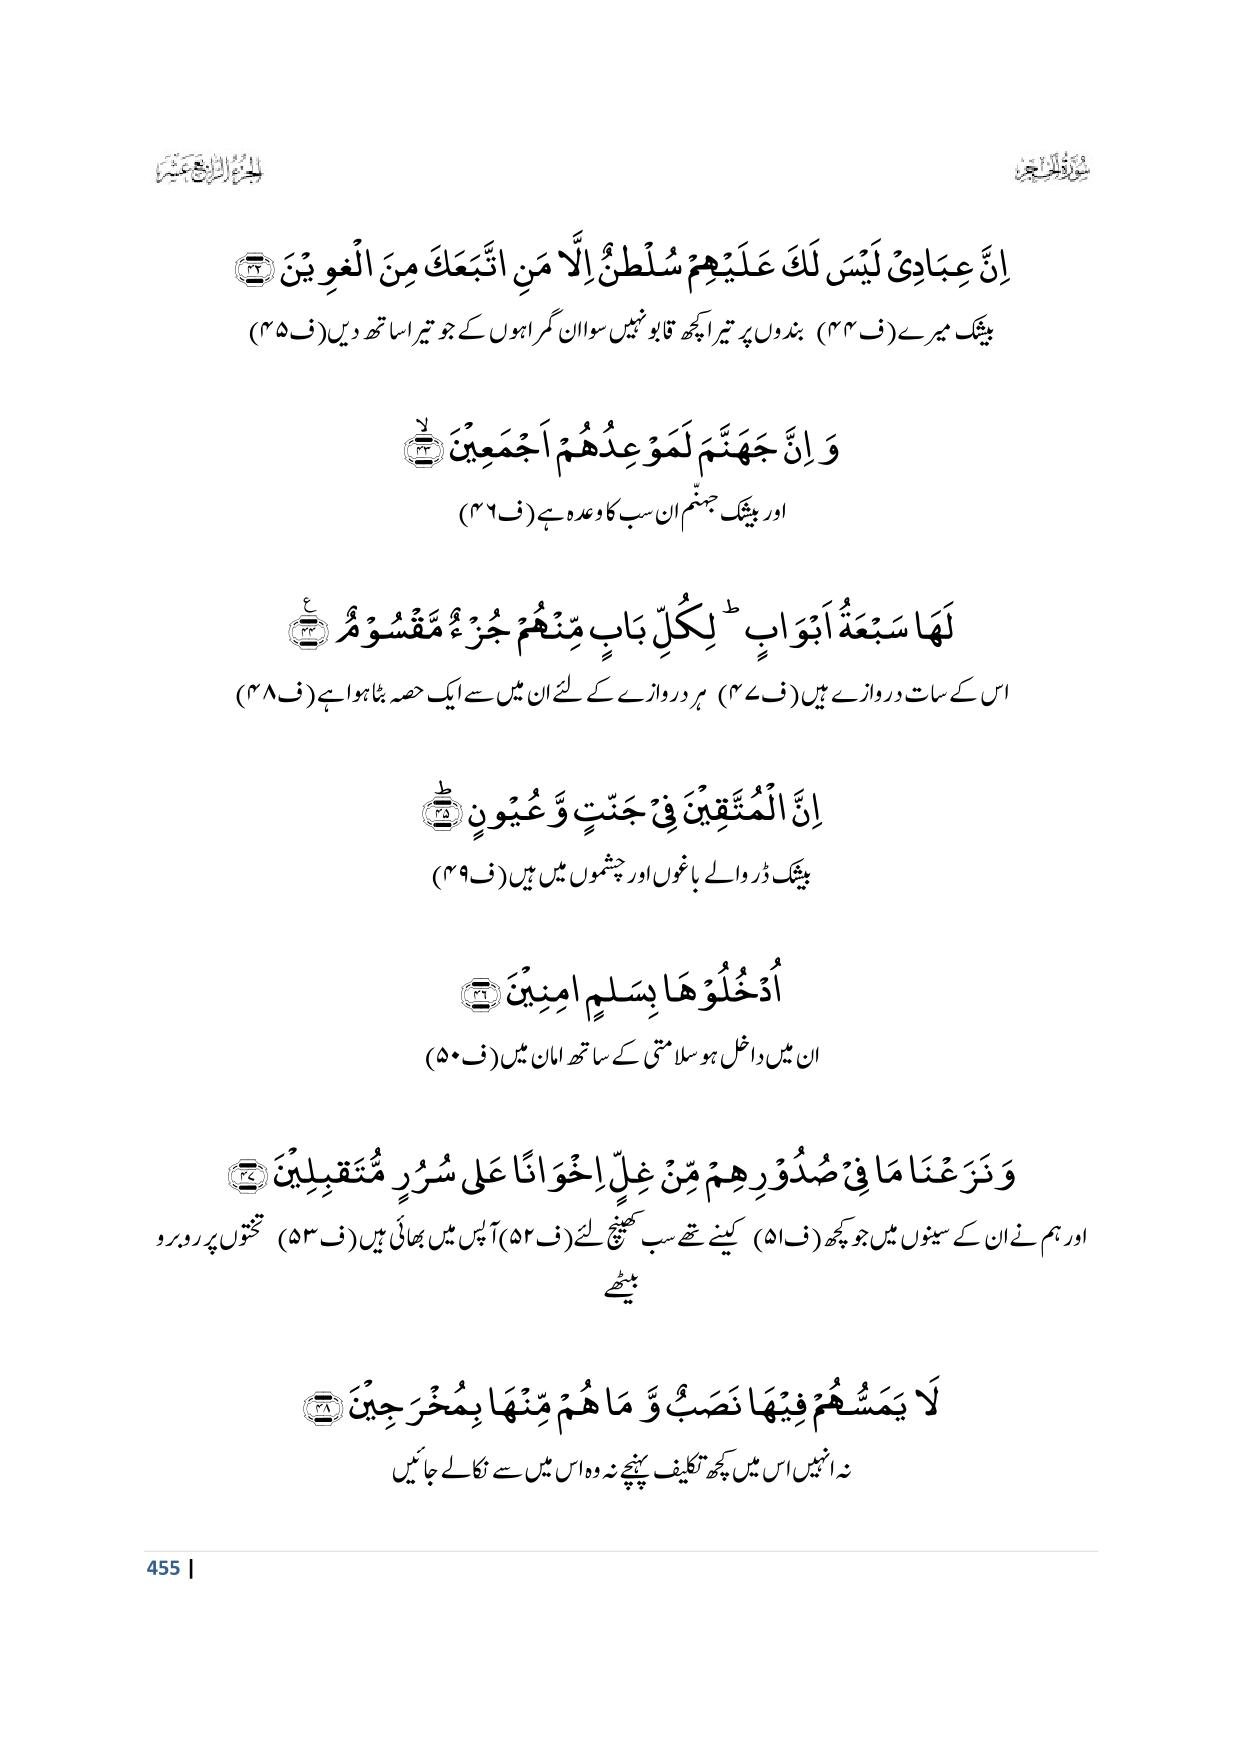 سُوْرَةُ الْحِجْرِ
الجُزْءُ الرَّابِعَ عَشَرَ
اِنَّ عِبَادِیْ لَیْسَ لَكَ عَلَیْهِمْ سُلْطٰنٌ اِلَّا مَنِ اتَّبَعَكَ مِنَ الْغٰوِیْنَ ﴿۴۲﴾
بیشک میرے(ف۴۴) بندوں پر تیرا کچھ قابو نہیں سوا ان گمراہوں کے جو تیرا ساتھ دیں(ف۴۵)
وَ اِنَّ جَهَنَّمَ لَمَوْعِدُهُمْ اَجْمَعِیْنَ ﴿۴۳﴾ۙ
اور بیشک جہنّم ان سب کا وعدہ ہے(ف۴۶)
لَهَا سَبْعَةُ اَبْوَابٍؕ لِكُلِّ بَابٍ مِّنْهُمْ جُزْءٌ مَّقْسُوْمٌ ﴿۴۴﴾ع
اس کے سات دروازے ہیں(ف۴۷) ہر دروازے کے لئے ان میں سے ایک حصہ بٹا ہوا ہے(ف۴۸)
اِنَّ الْمُتَّقِیْنَ فِیْ جَنّٰتٍ وَّ عُیُوْنٍ ﴿۴۵﴾ؕ
بیشک ڈر والے باغوں اور چشموں میں ہیں(ف۴۹)
اُدْخُلُوْهَا بِسَلٰمٍ اٰمِنِیْنَ ﴿۴۶﴾
ان میں داخل ہو سلامتی کے ساتھ امان میں(ف۵۰)
وَ نَزَعْنَا مَا فِیْ صُدُوْرِهِمْ مِّنْ غِلٍّ اِخْوَانًا عَلٰی سُرُرٍ مُّتَقٰبِلِیْنَ ﴿۴۷﴾
اور ہم نے ان کے سینوں میں جو کچھ(ف۵۱) کینے تھے سب کھینچ لئے(ف۵۲)آپس میں بھائی ہیں(ف۵۳) تختوں پر روبرو
بیٹھے
لَا یَمَسُّهُمْ فِیْهَا نَصَبٌ وَّ مَا هُمْ مِّنْهَا بِمُخْرَجِیْنَ ﴿۴۸﴾
نہ انہیں اس میں کچھ تکلیف پہنچے نہ وہ اس میں سے نکالے جائیں
455 |